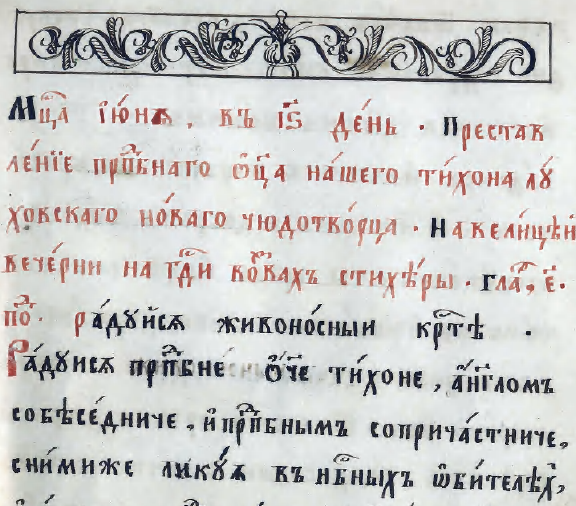 Мц҃а їю́нѧ, въ і҃ѕ де́нь · Престав
ле́нїе прп҃бнаго ѻ҆ц҃а на́шего ти́хона лꙋ́
ховскаго но́ваго чюдотво́рца · На вели́цѣй
вече́рни на гд҃и воз̾ва́хъ стихѣ́ры · гла́с, є҃·
по́д · ра́дꙋйсѧ живоно́сныи крⷭ҇тѣ ·
Ра́дꙋисѧ прп҃бне ѻ҆́ч҃е ти́хоне, а҆́нг҃ломъ
собѣсе́дниче, и҆ прп҃бнымъ соприча́стниче,
сни́миже ликꙋ́ѧ въ нб҃ныхъ ѡ҆би́телѣх,